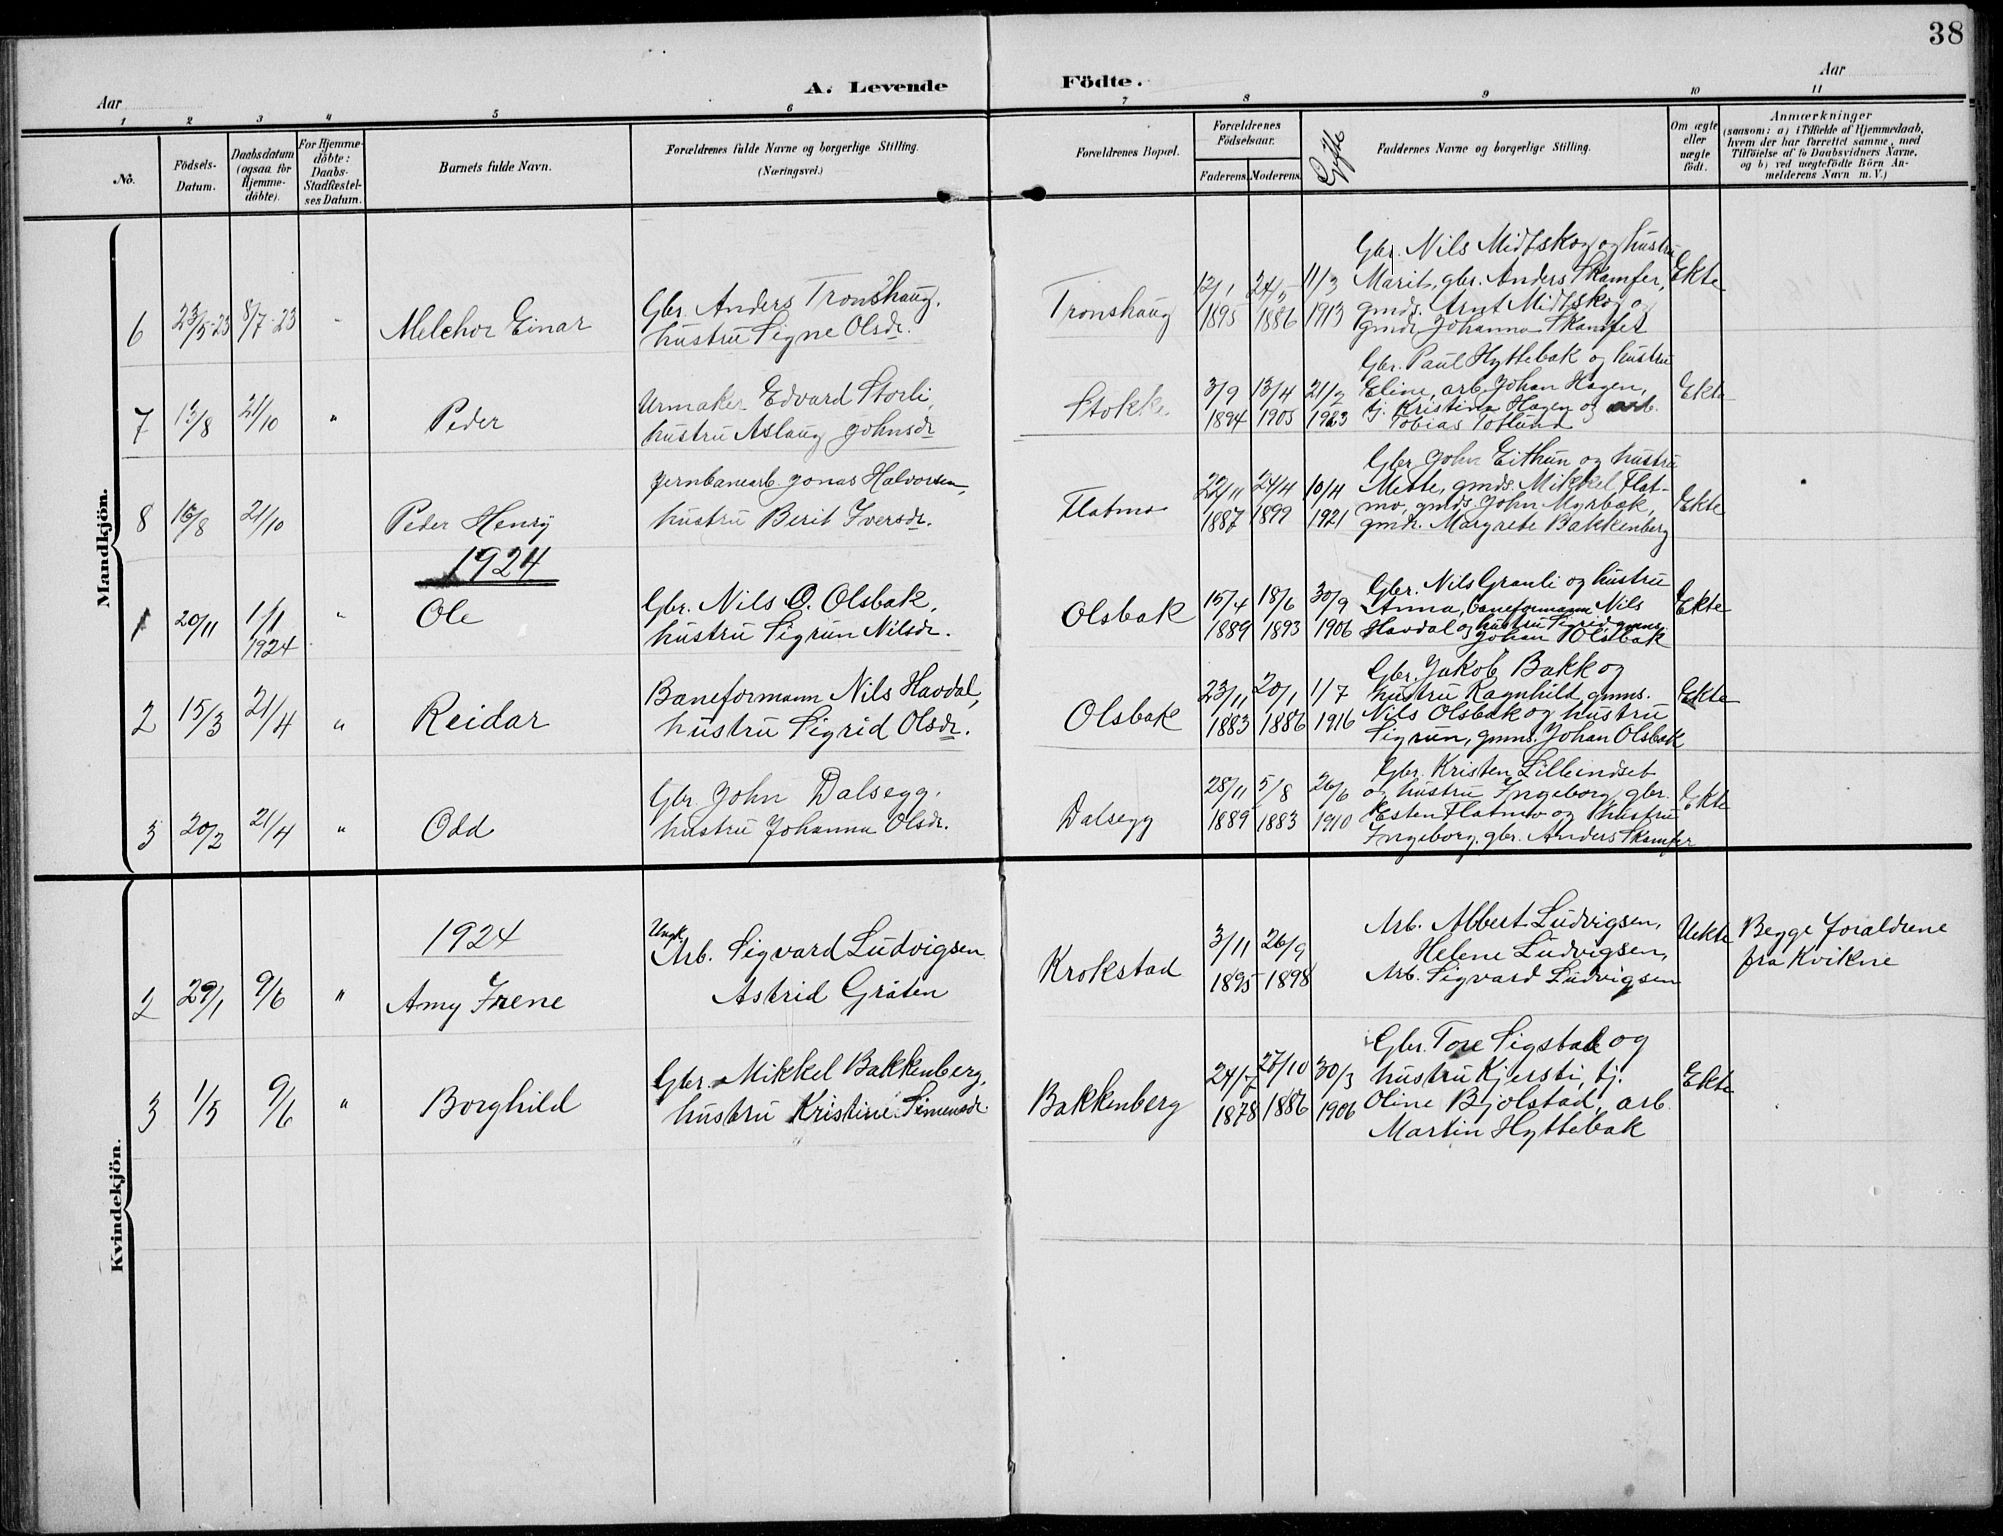 38
A. Levende Födte.
Aar
Aar
1 2 3 4 5 6 7 8 9 10 11
No.
Födsels-
Datum.
Daabsdatum
(ogsaa for
Hjemme-
döbte).
For Hjemme-
döbte:
Daabs-
Stadfæstel-
ses Datum.
Barnets fulde Navn.
Forældrenes fulde Navne og borgerlige Stilling.
(Næringsvei.)
Forældrenes Bopæl.
Forældrenes
Födselsaar.
Faderens. Moderens.
Gifte
Faddernes Navne og borgerlige Stilling.
Om ægte
eller
uægte
födt.
Anmærkninger
(saasom: a) i Tilfælde af Hjemmedaab,
hvem der har forrettet samme, med
Tilföielse af to Daabsvidners Navne,
og b) ved uægtefödte Börn An-
melderens Navn m. V.)
Mandkjön.
6 23/5-23 8/7-23 "
Melchor Einar
Gbr. Anders Tronshaug,
hustru Signe Olsdr.
Tronshaug
12/1 24/5 11/3
1895 1886 1913
Gbr. Nils Midtskog og hustru
Marit, gbr. Anders Skamfer,
gmds. Arnt Midtskog og
gmdr. Johanna Skamfer
Ekte
7 13/8 21/10 "
Peder
Urmaker Edvard Storli,
hustru Aslaug Johnsdr
Stokke
3/9 13/4 21/2
1894 1905 1923
Gbr. Paul Hyttebak og hustru
Eline, arb. Johan Hagen,
tj. Kristina Hagen og arb.
Tobias Totlund
Ekte
8 16/8 21/10
Peder Henry
Jernbanearb Jonas Halvorsen,
hustru Berit Iversdr.
Flatmo
22/11 24/4 10/4
1887 1899 1921
Gbr John Eithun og hustru
Mette, gmds. Mikkel Flat-
mo, gmds John Myrbak,
gmdr. Margrete Bakkenberg
Ekte
1924
1 20/11 1/1 "
1924
Ole
Gbr. Nils O. Olsbak,
hustru Sigrun Nilsdr.
Olsbak
15/4 18/6 30/9
1889 1893 1906
Gbr. Nils Granli og hustru
Anna, baneformann Nils
Havdal og hustru Sigrid, gmns.
Johan Olsbak
Ekte
2 15/3 21/4 "
Reidar
Baneformann Nils Havdal,
hustru Sigrid Olsdr.
Olsbak
23/11 20/1 1/7
1883 1886 1916
Gbr. Jakob Bakk og
hustru Ragnhild, gmns.
Nils Olsbak og hustru
Sigrun, gmns. Johan Olsbak
Ekte
3 20/2 21/4 "
Odd
Gbr John Dalsegg,
hustru Johanna Olsdr.
Dalsegg
28/11 5/8 26/6
1889 1883 1910
Gbr. Kristen Lilleindset
og hustru Ingeborg, gbr.
Esten Flatmo og hustru
Ingeborg, gbr. Anders Skamfer
Ekte
Kvindekjön.
1924
2 29/1 9/6 "
Amy Irene
Ungk.
Arb. Sigvard Ludvigsen
Astrid Gråten
Krokstad
3/11 26/9
1895 1898
Arb. Albert Ludvigsen,
Helene Ludvigsen,
Arb. Sigvard Ludvigsen
Uekte
Begge foraldrene
fra Kvikne
3 1/5 9/6 "
Borghild
Gbr. Mikkel Bakkenberg,
hustru Kristine Simensdr
Bakkenberg
24/7 27/10 30/3
1878 1886 1906
Gbr. Tore Sigstad og
hustru Kjersti, tj.
Oline Bjolstad, arb.
Martin Hyttebak
Ekte